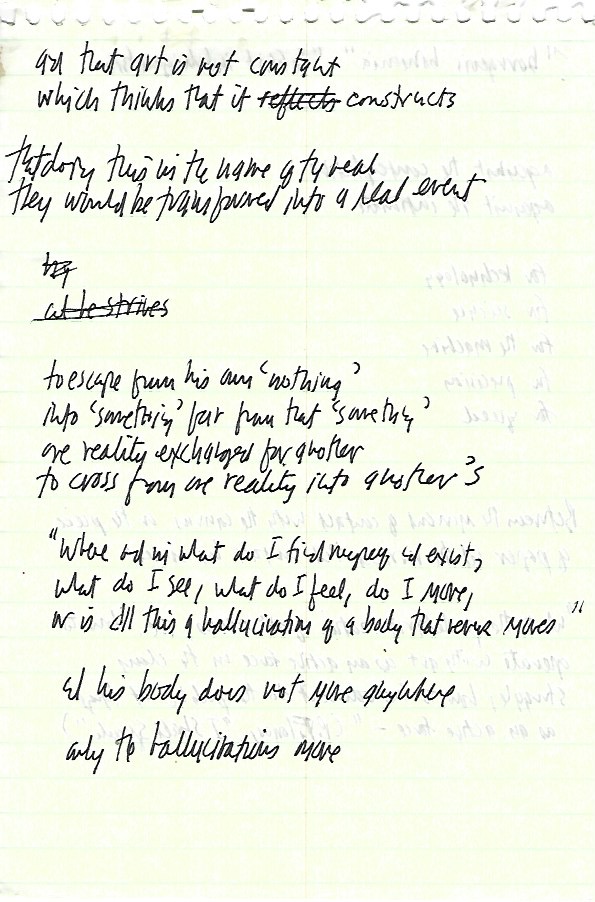 and that art is not constant
which thinks that it reflects constructs
that doing this in the name of the real
they would be transformed into a real event
to escape from his own 'nothing'
into 'something' far from that 'something'
one reality exchanged for another
to cross from one reality into another's
"Where and in what do I find myself and exist,
what do I see, what do I feel, do I move,
or is all this a hallucination of a body that never moves"
and his body does not move anywhere
only the hallucinations move